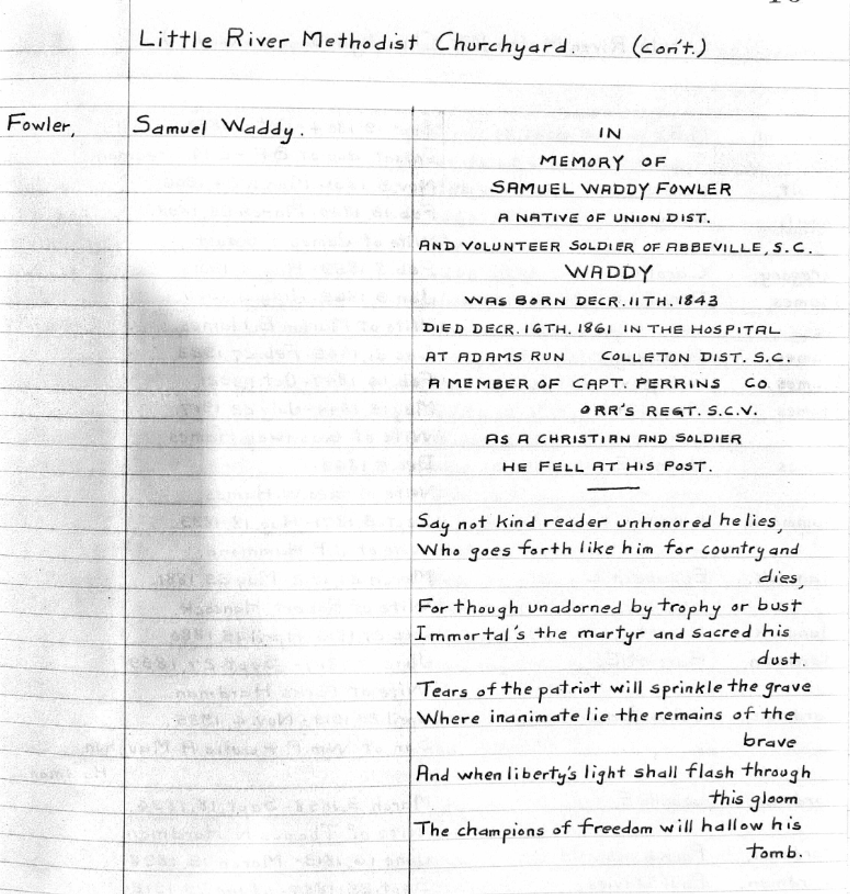 Little River Methodist Churchyard. (con't.)
Fowler, Samuel Waddy.
IN
MEMORY OF
SAMUEL WADDY FOWLER
A NATIVE OF UNION DIST.
AND VOLUNTEER SOLDIER OF ABBEVILLE, S.C.
WADDY
WAS BORN DECR. 11TH. 1843
DIED DECR. 16TH. 1861 IN THE HOSPITAL
AT ADAMS RUN COLLETON DIST. S.C.
A MEMBER OF CAPT. PERRINS CO
ORR'S REGT. S.C.V.
AS A CHRISTIAN AND SOLDIER
HE FELL AT HIS POST.
Say not kind reader unhonored he lies,
Who goes forth like him for country and
dies,
For though unadorned by trophy or bust
Immortal's the martyr and sacred his
dust.
Tears of the patriot will sprinkle the grave
Where inanimate lie the remains of the
brave
And when liberty's light shall flash through
this gloom
The champions of freedom will hallow his
tomb.